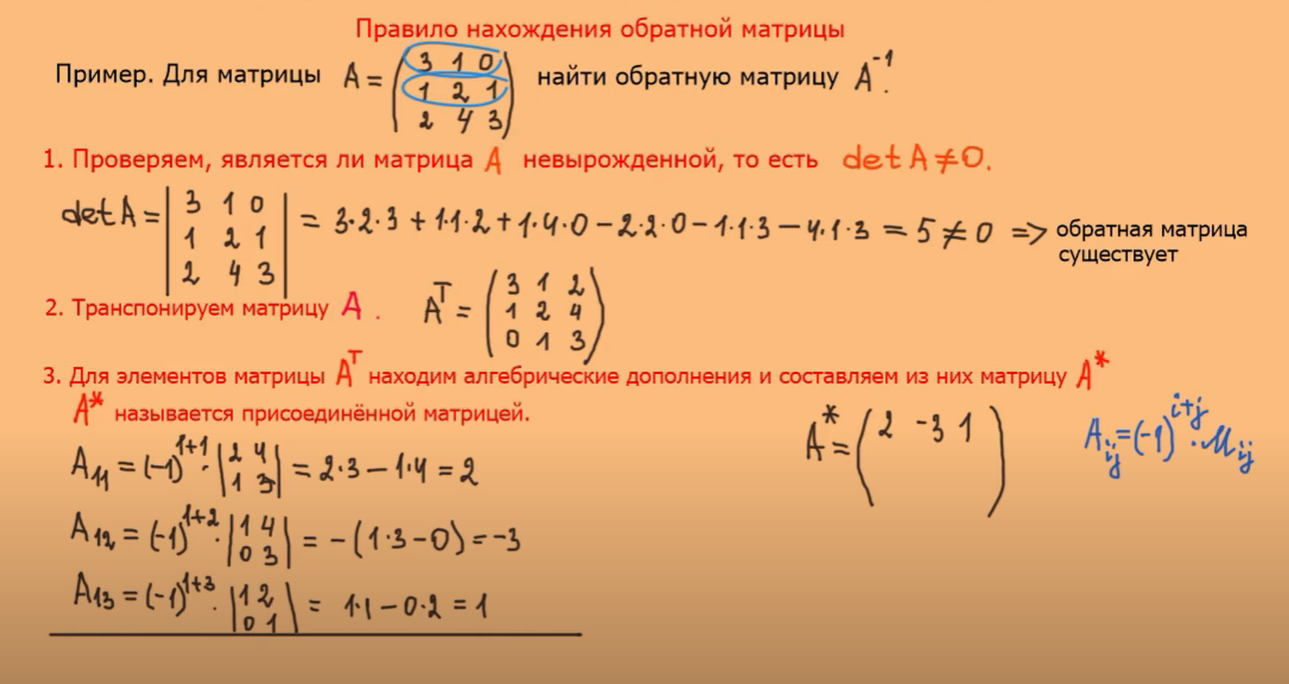 Правило нахождения обратной матрицы
Пример. Для матрицы A = (3 1 0
1 2 1
2 4 3) найти обратную матрицу A⁻¹.
1. Проверяем, является ли матрица A невырожденной, то есть det A ≠ 0.
det A = |3 1 0
1 2 1
2 4 3| = 3·2·3 + 1·1·2 + 1·4·0 − 2·2·0 − 1·1·3 − 4·1·3 = 5 ≠ 0 => обратная матрица
существует
2. Транспонируем матрицу A. Aᵀ = (3 1 2
1 2 4
0 1 3)
3. Для элементов матрицы Aᵀ находим алгебрические дополнения и составляем из них матрицу A*
A* называется присоединённой матрицей.
A* = (2 -3 1)
A_ij = (-1)^(i+j) · M_ij
A₁₁ = (-1)¹⁺¹ · |2 4
1 3| = 2·3 − 1·4 = 2
A₁₂ = (-1)¹⁺² · |1 4
0 3| = −(1·3 − 0) = −3
A₁₃ = (-1)¹⁺³ · |1 2
0 1| = 1·1 − 0·2 = 1